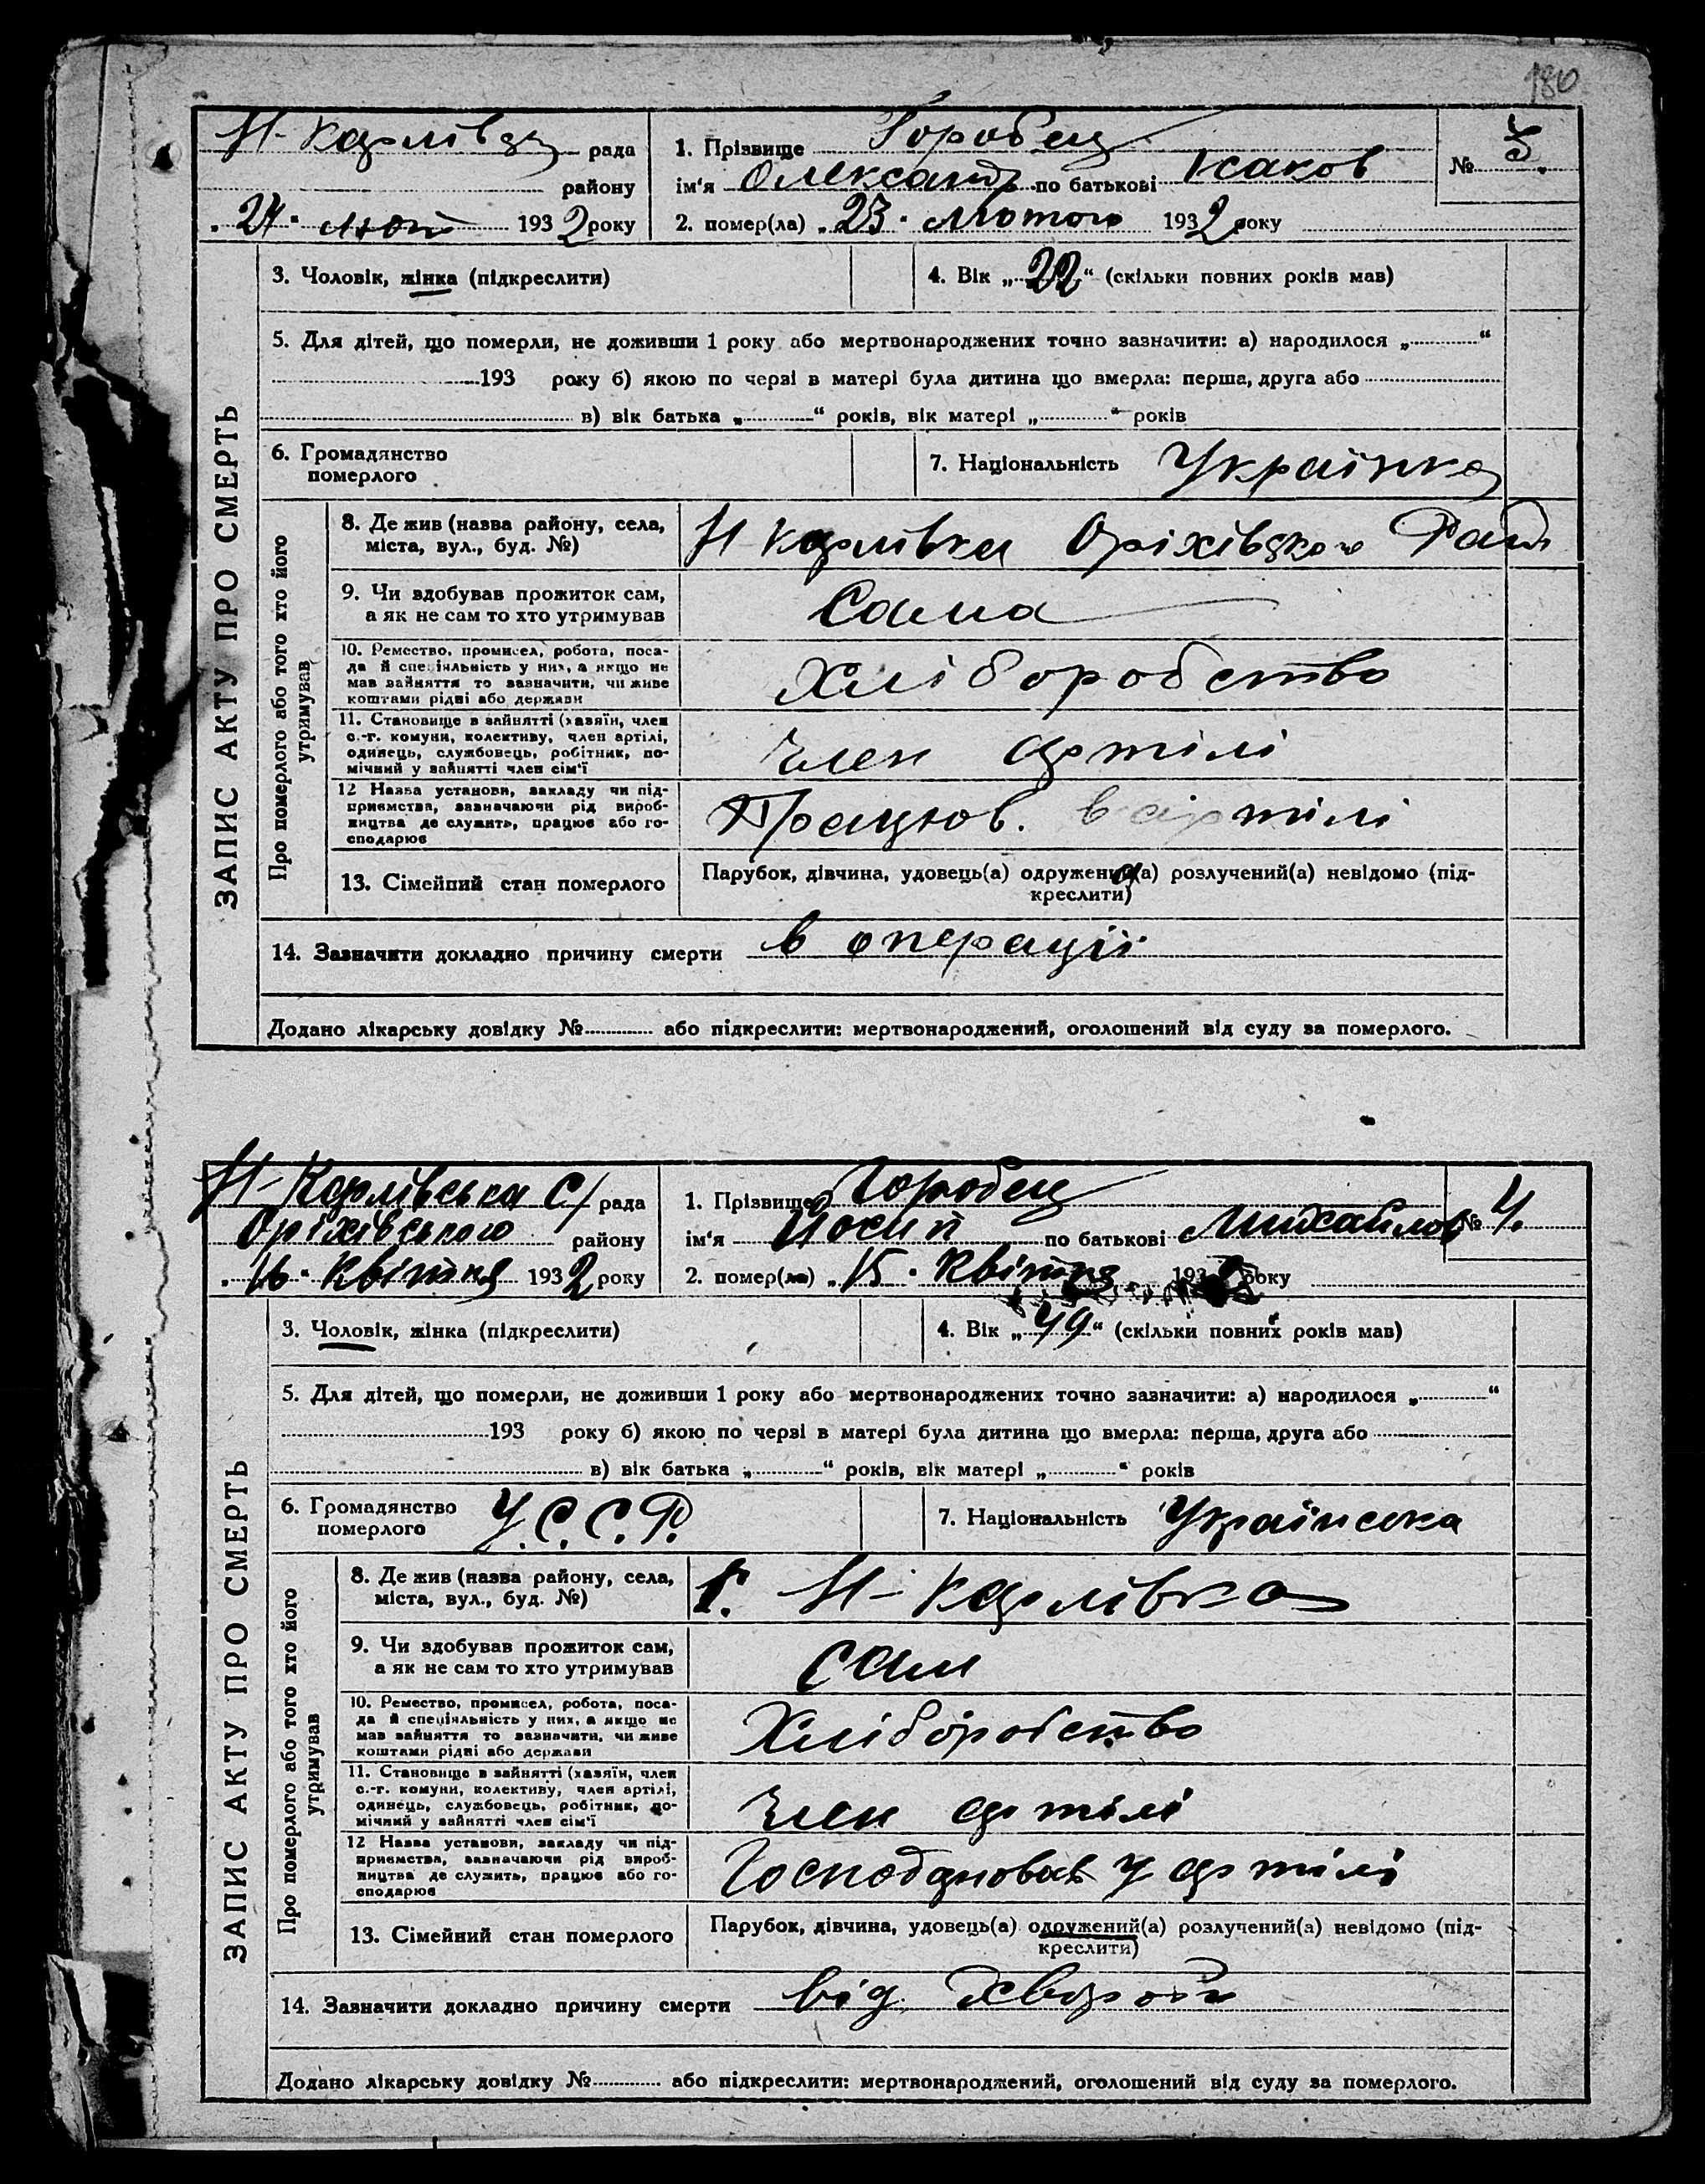 180
Н-Карлівська рада
району
24. лют 1932 року
1. Прізвище Горобец
ім'я Олександр по батькові Ісаков
2. помер(ла) „23. лютого 1932 року
№ 3.
ЗАПИС АКТУ ПРО СМЕРТЬ
3. Чоловік, жінка (підкреслити)
4. Вік „22“ (скільки повних років мав)
5. Для дітей, що померли, не доживши 1 року або мертвонароджених точно зазначити: а) народилося „ “
193 року б) якою по черзі в матері була дитина що вмерла: перша, друга або
в) вік батька „ “ років, вік матері „ “ років
6. Громадянство
померлого
7. Національність Українка
Про померлого або того хто його
утримував
8. Де жив (назва району, села,
міста, вул., буд. №)
Н Карлівка Оріхівського Рай
9. Чи здобував прожиток сам,
а як не сам то хто утримував
Сама
10. Ремество, промисел, робота, поса-
да й спеціяльність у них, а якщо не
мав зайняття то зазначити, чи живе
коштами рідні або держави
Хліборобство
11. Становище в зайнятті (хазяїн, член
с.-г. комуни, колективу, член артілі,
одинець, службовець, робітник, по-
мічний у зайнятті член сім'ї
член артілі
12 Назва установи, закладу чи під-
приємства, зазначаючи рід вироб-
ництва де служить, працює або го-
сподарює
Працюв. в артілі
13. Сімейний стан померлого
Парубок, дівчина, удовець(а) одружений(а) розлучений(а) невідомо (під-
креслити)
14. Зазначити докладно причину смерти в операції
Додано лікарську довідку № або підкреслити: мертвонароджений, оголошений від суду за померлого.
Н-Карлівська С/рада
Оріхівського району
„16. Квітня 1932 року
1. Прізвище Горобец
ім'я Йосип по батькові Михайлов
2. помер(ла) „15. Квітня 1932 року
№ 4.
ЗАПИС АКТУ ПРО СМЕРТЬ
3. Чоловік, жінка (підкреслити)
4. Вік „49“ (скільки повних років мав)
5. Для дітей, що померли, не доживши 1 року або мертвонароджених точно зазначити: а) народилося „ “
193 року б) якою по черзі в матері була дитина що вмерла: перша, друга або
в) вік батька „ “ років, вік матері „ “ років
6. Громадянство
померлого
У.С.С.Р.
7. Національність Українська
Про померлого або того хто його
утримував
8. Де жив (назва району, села,
міста, вул., буд. №)
Н-Карлівка
9. Чи здобував прожиток сам,
а як не сам то хто утримував
сам
10. Ремество, промисел, робота, поса-
да й спеціяльність у них, а якщо не
мав зайняття то зазначити, чи живе
коштами рідні або держави
Хліборобство
11. Становище в зайнятті (хазяїн, член
с.-г. комуни, колективу, член артілі,
одинець, службовець, робітник, по-
мічний у зайнятті член сім'ї
член артілі
12 Назва установи, закладу чи під-
приємства, зазначаючи рід вироб-
ництва де служить, працює або го-
сподарює
Господарював у артілі
13. Сімейний стан померлого
Парубок, дівчина, удовець(а) одружений(а) розлучений(а) невідомо (під-
креслити)
14. Зазначити докладно причину смерти від хвороби
Додано лікарську довідку № або підкреслити: мертвонароджений, оголошений від суду за померлого.